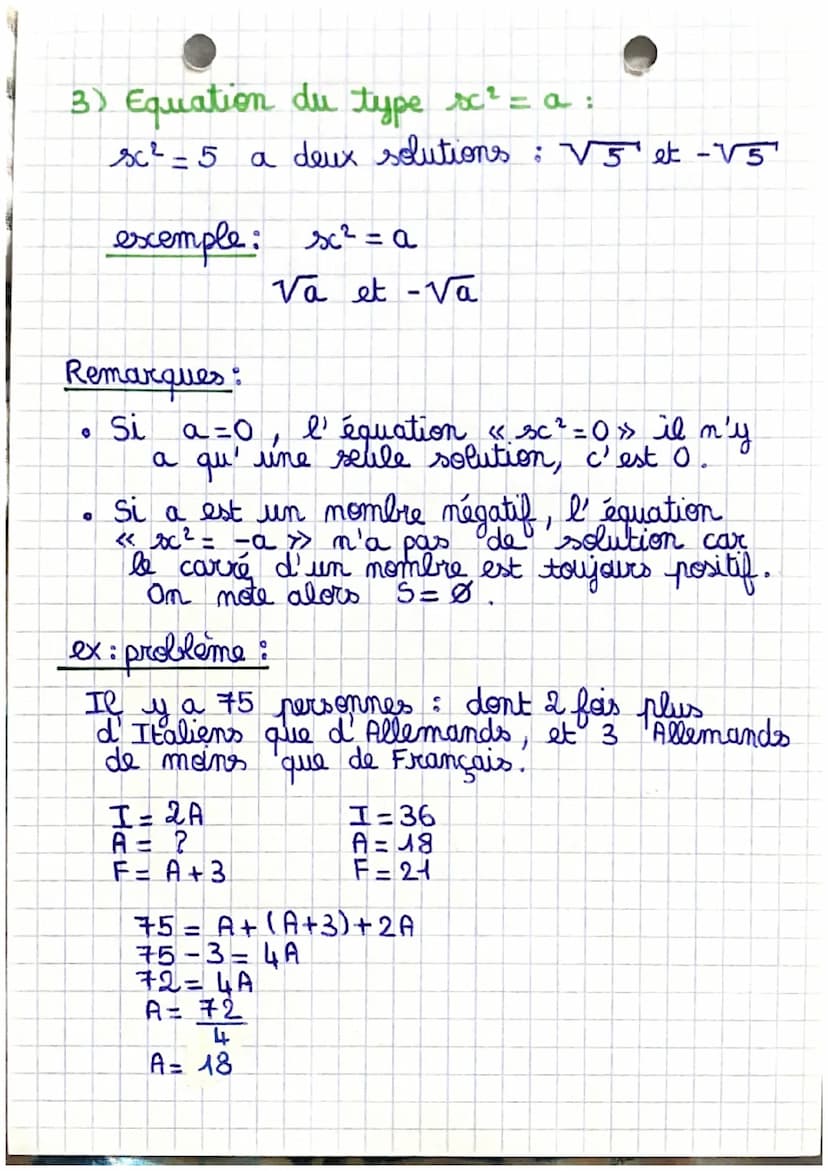 3) Equation du type x² = a :
x² = 5 a deux solutions : √5 et -√5
exemple : x² = a
√a et -√a
Remarques :
• Si a=0, l'équation « x²=0 » il n'y
a qu'une seule solution, c'est 0.
• Si a est un nombre négatif, l'équation
« x² = -a » n'a pas de solution car
le carré d'un nombre est toujours positif.
On note alors S=Ø.
ex : problème :
Il y a 75 personnes : dont 2 fois plus
d'Italiens que d'Allemands, et 3 Allemands
de moins que de Français.
I = 2A
A = ?
F = A+3
I = 36
A = 18
F = 21
75 = A+(A+3)+2A
75-3 = 4A
72 = 4A
A = 72/4
A = 18